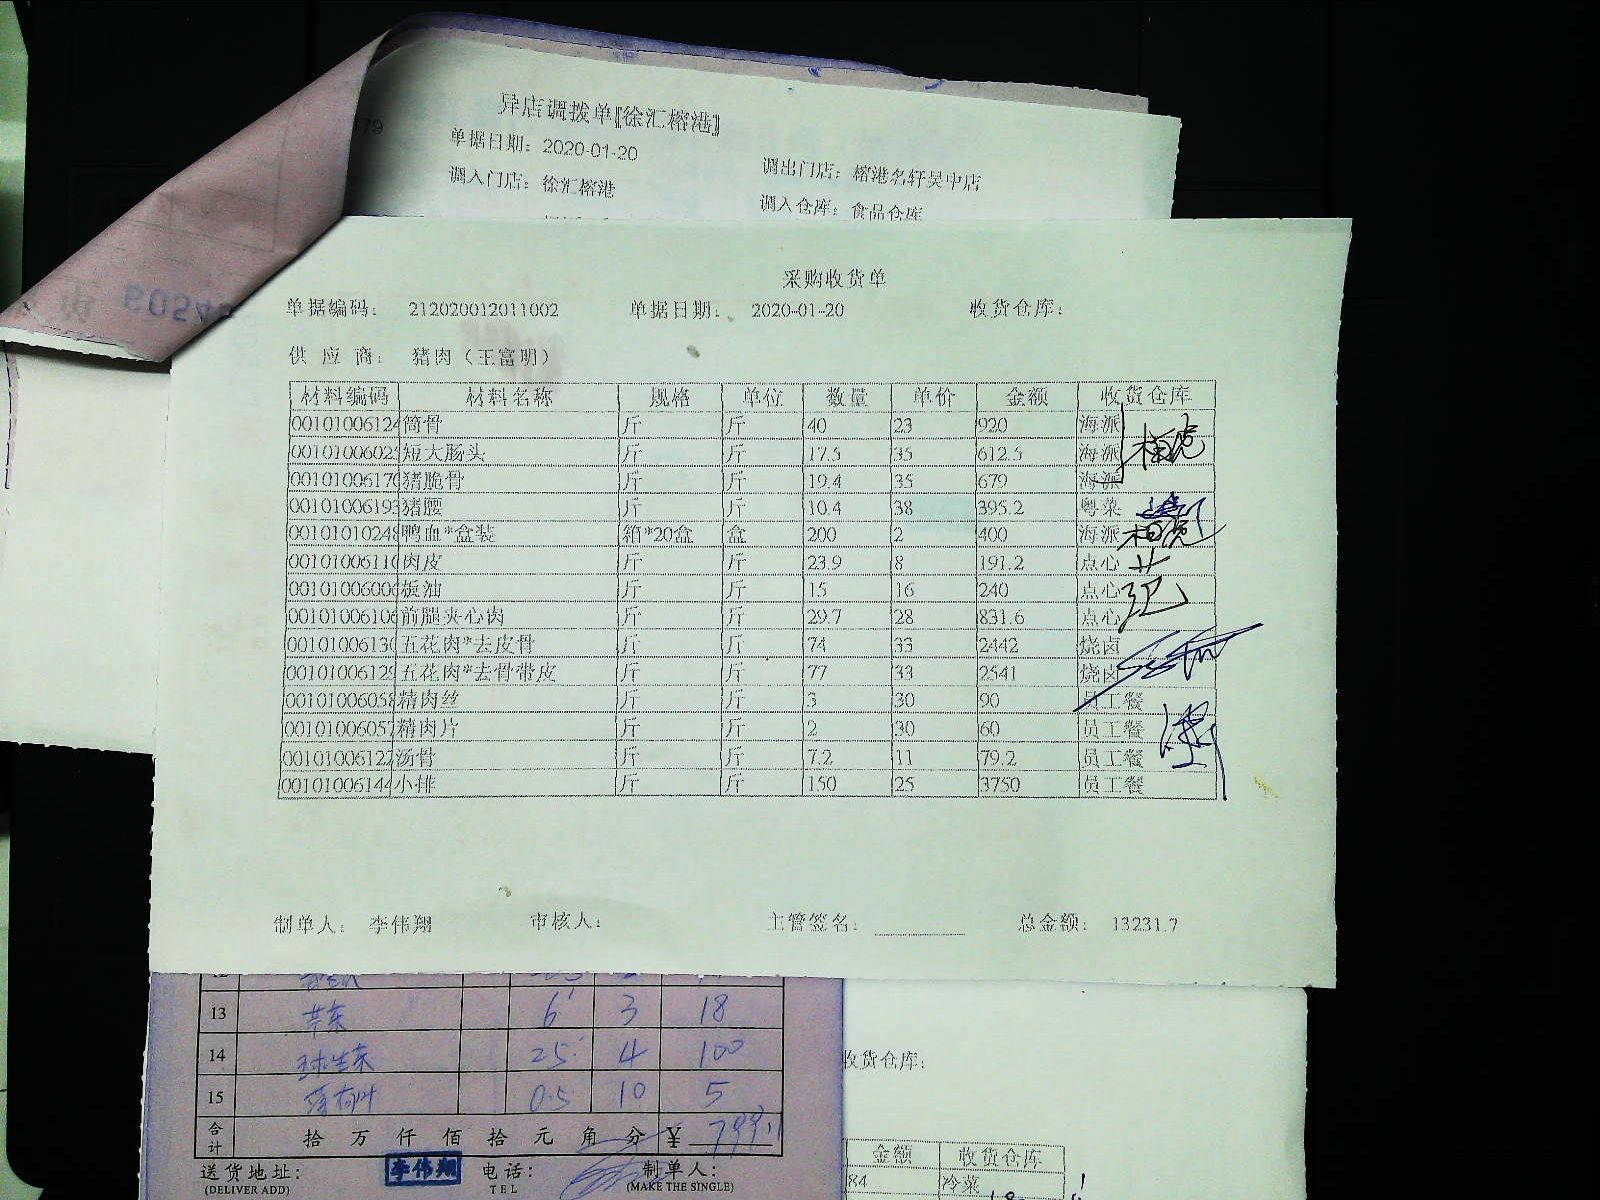 异店调拨单[徐汇榕港]
单据日期：2020-01-20
调出门店：榕港名轩吴中店
调入门店：徐汇榕港
调入仓库：食品仓库
采购收货单
单据编码： 212020012011002 单据日期： 2020-01-20 收货仓库：
供 应 商： 猪肉（王富明）
材料编码 材料名称 规格 单位 数量 单价 金额 收货仓库
00101006124 筒骨 斤 斤 40 23 920 海派
0010100602 短大肠头 斤 斤 17.5 35 612.5 海派
0010100617 猪脆骨 斤 斤 19.4 35 679 海派
00101006193 猪腰 斤 斤 10.4 38 395.2 粤菜
00101010248 鸭血*盒装 箱*20盒 盒 200 2 400 海派
0010100611 肉皮 斤 斤 23.9 8 191.2 点心
0010100600 板油 斤 斤 15 16 240 点心
0010100610 前腿夹心肉 斤 斤 29.7 28 831.6 点心
0010100613 五花肉*去皮骨 斤 斤 74 33 2442 烧卤
00101006129 五花肉*去骨带皮 斤 斤 77 33 2541 烧卤
00101006058 精肉丝 斤 斤 3 30 90 员工餐
00101006057 精肉片 斤 斤 2 30 60 员工餐
00101006122 汤骨 斤 斤 7.2 11 79.2 员工餐
00101006144 小排 斤 斤 150 25 3750 员工餐
制单人： 李伟翔 审核人： 主管签名： 总金额： 13231.7
13 6 3 18
14 球生菜 25 4 100
15 薄荷叶 0.5 10 5
合计 拾 万 仟 佰 拾 元 角 分 ¥ 799.1
送货地址： 李伟翔 电话： 制单人：
(DELIVER ADD) TEL (MAKE THE SINGLE)
收货仓库：
金额 收货仓库
84 冷菜